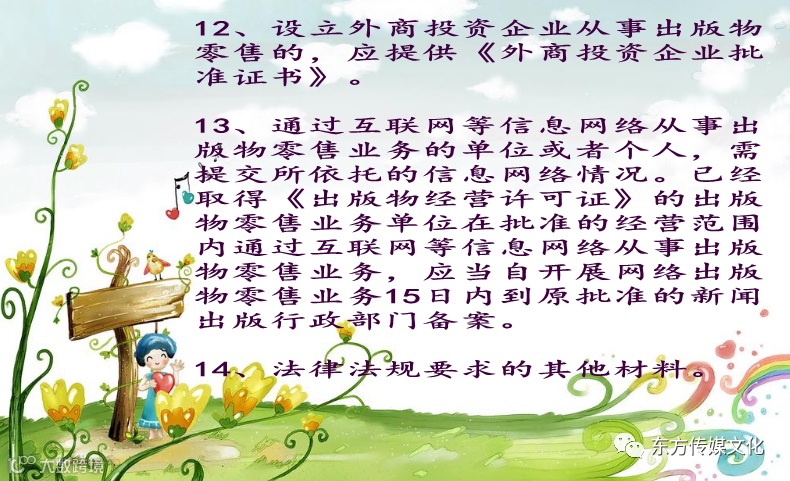 12、设立外商投资企业从事出版物
零售的，应提供《外商投资企业批
准证书》。
13、通过互联网等信息网络从事出
版物零售业务的单位或者个人，需
提交所依托的信息网络情况。已经
取得《出版物经营许可证》的出版
物零售业务单位在批准的经营范围
内通过互联网等信息网络从事出版
物零售业务，应当自开展网络出版
物零售业务15日内到原批准的新闻
出版行政部门备案。
14、法律法规要求的其他材料。
东方传媒文化
大数跨境